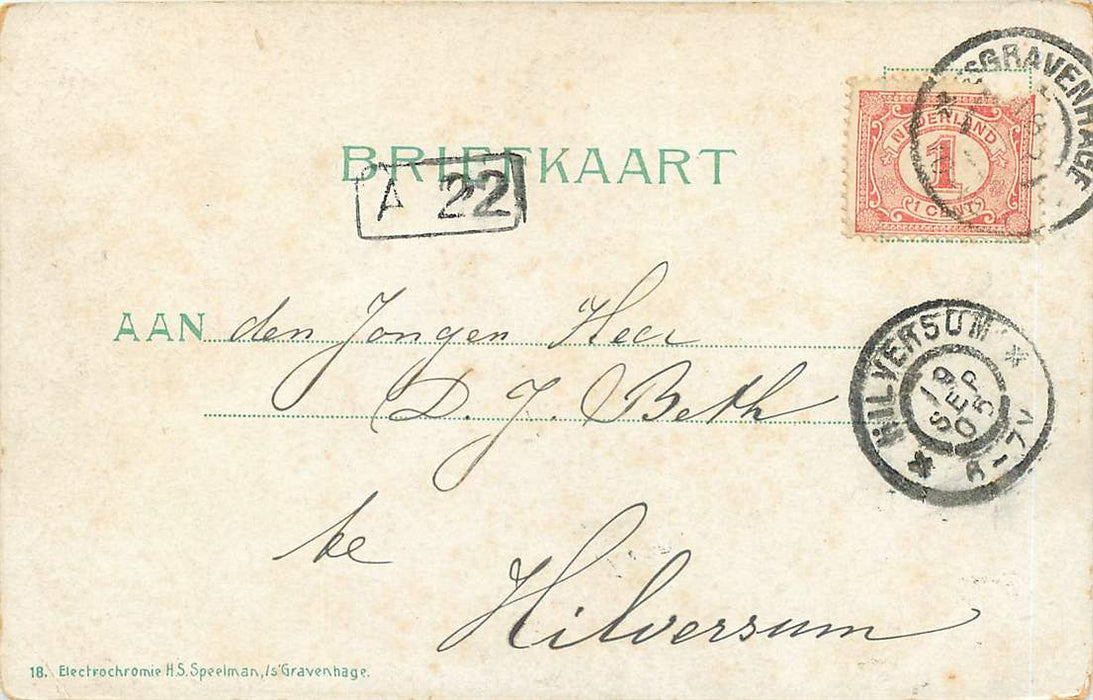 BRIEFKAART
A 22
'SGRAVENHAGE
NEDERLAND
1
1 CENT
AAN den Jongen Heer
D. J. Beth
HILVERSUM
19
SEP
05
6-7V
te
Hilversum
18. Electrochromie H.S. Speelman, /s'Gravenhage.